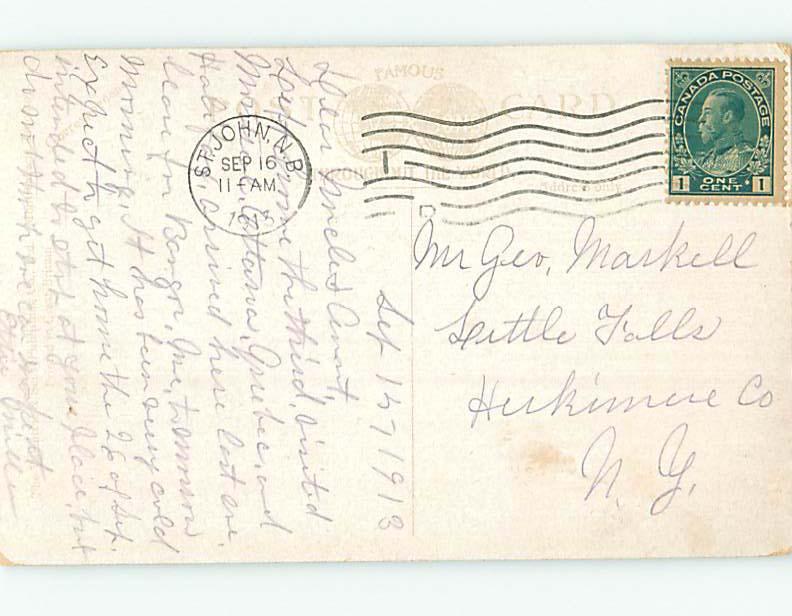 FAMOUS
POST CARD
THROUGHOUT THE WORLD
Address only
CANADA POSTAGE
1 ONE CENT 1
ST. JOHN, N.B.
SEP 16
11-AM
Sep 15 1913
Dear Uncle & Aunt,
Left home the third, visited
Montreal, Ottawa, Quebec, and
Halifax, arrived here last eve.
Leave for Bangor, Me, tomorrow
Morning. It has been very cold
Expect to get home the 26 of Sep.
intended to stop at your place, but
don't think we can
Effie Miller
Mr Geo. Markell
Little Falls
Herkimere Co
N. Y.